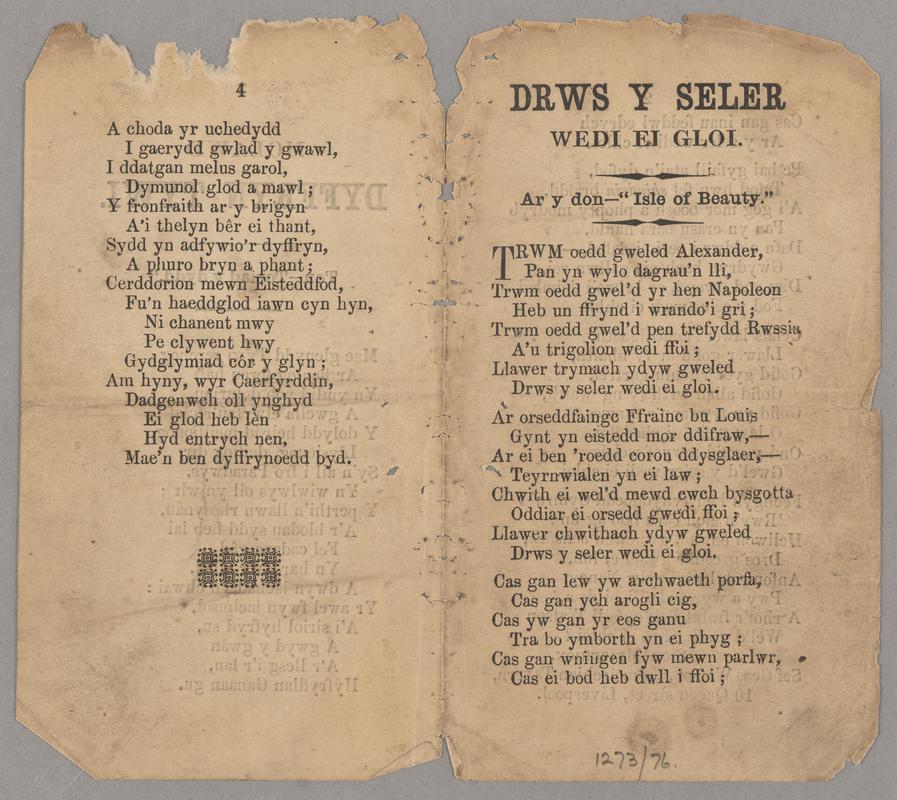 4
A choda yr uchedydd
I gaerydd gwlad y gwawl,
I ddatgan melus garol,
Dymunol glod a mawl;
Y fronfraith ar y brigyn
A'i thelyn bêr ei thant,
Sydd yn adfywio'r dyffryn,
A phuro bryn a phant;
Cerddorion mewn Eisteddfod,
Fu'n haeddglod iawn cyn hyn,
Ni chanent mwy
Pe clywent hwy
Gydglymiad côr y glyn;
Am hyny, wyr Caerfyrddin,
Dadgenwch oll ynghyd
Ei glod heb lèn
Hyd entrych nen,
Mae'n ben dyffrynoedd byd.
DRWS Y SELER
WEDI EI GLOI.
Ar y don—"Isle of Beauty."
TRWM oedd gweled Alexander,
Pan yn wylo dagrau'n lli,
Trwm oedd gwel'd yr hen Napoleon
Heb un ffrynd i wrando'i gri;
Trwm oedd gwel'd pen trefydd Rwssia,
A'u trigolion wedi ffoi;
Llawer trymach ydyw gweled
Drws y seler wedi ei gloi.
Ar orseddfaingc Ffrainc bu Louis
Gynt yn eistedd mor ddifraw,—
Ar ei ben 'roedd coron ddysglaer,—
Teyrnwialen yn ei law;
Chwith ei wel'd mewd cwch bysgotta
Oddiar ei orsedd gwedi ffoi;
Llawer chwithach ydyw gweled
Drws y seler wedi ei gloi.
Cas gan lew yw archwaeth porfa,
Cas gan ych arogli cig,
Cas yw gan yr eos ganu
Tra bo ymborth yn ei phyg;
Cas gan wningen fyw mewn parlwr,
Cas ei bod heb dwll i ffoi;
1273/76.